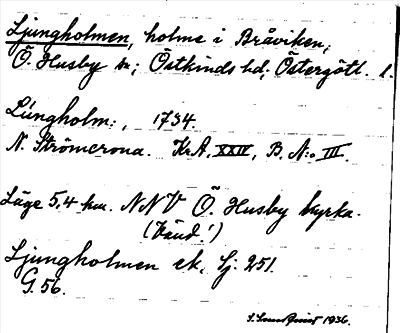 Ljungholmen, holme i Bråviken,
Ö. Husby sn; Östkinds hd, Östergötl. l.
Lüngholm:, 1734.
N. Strömcrona. Kr.A. XXIV, B. N:o III.
Läge 5,4 km. NNV Ö. Husby kyrka.
(Känd!)
Ljungholmen ek. Sj. 251.
G. 56.
1936.